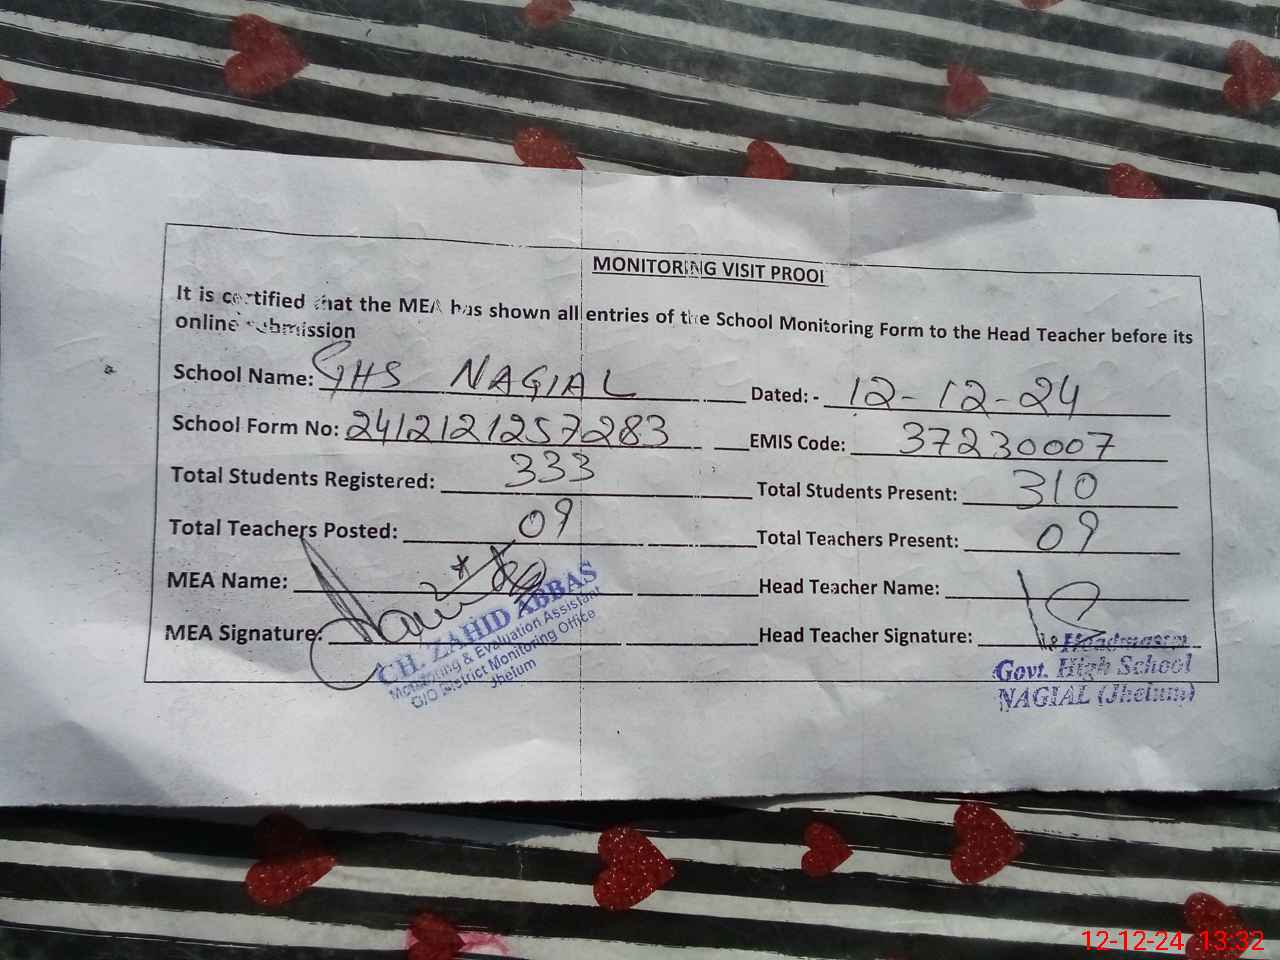 MONITORING VISIT PROOF
It is certified that the MEA has shown all entries of the School Monitoring Form to the Head Teacher before its
online submission
School Name: GHS NAGIAL Dated: - 12-12-24
School Form No: 2412121257283 EMIS Code: 37230007
Total Students Registered: 333 Total Students Present: 310
Total Teachers Posted: 09 Total Teachers Present: 09
MEA Name: Head Teacher Name:
MEA Signature: Head Teacher Signature:
CH. ZAHID ABBAS
Monitoring & Evaluation Assistant
O/O District Monitoring Office
Jhelum
Headmaster
Govt. High School
NAGIAL (Jhelum)
12-12-24 13:32